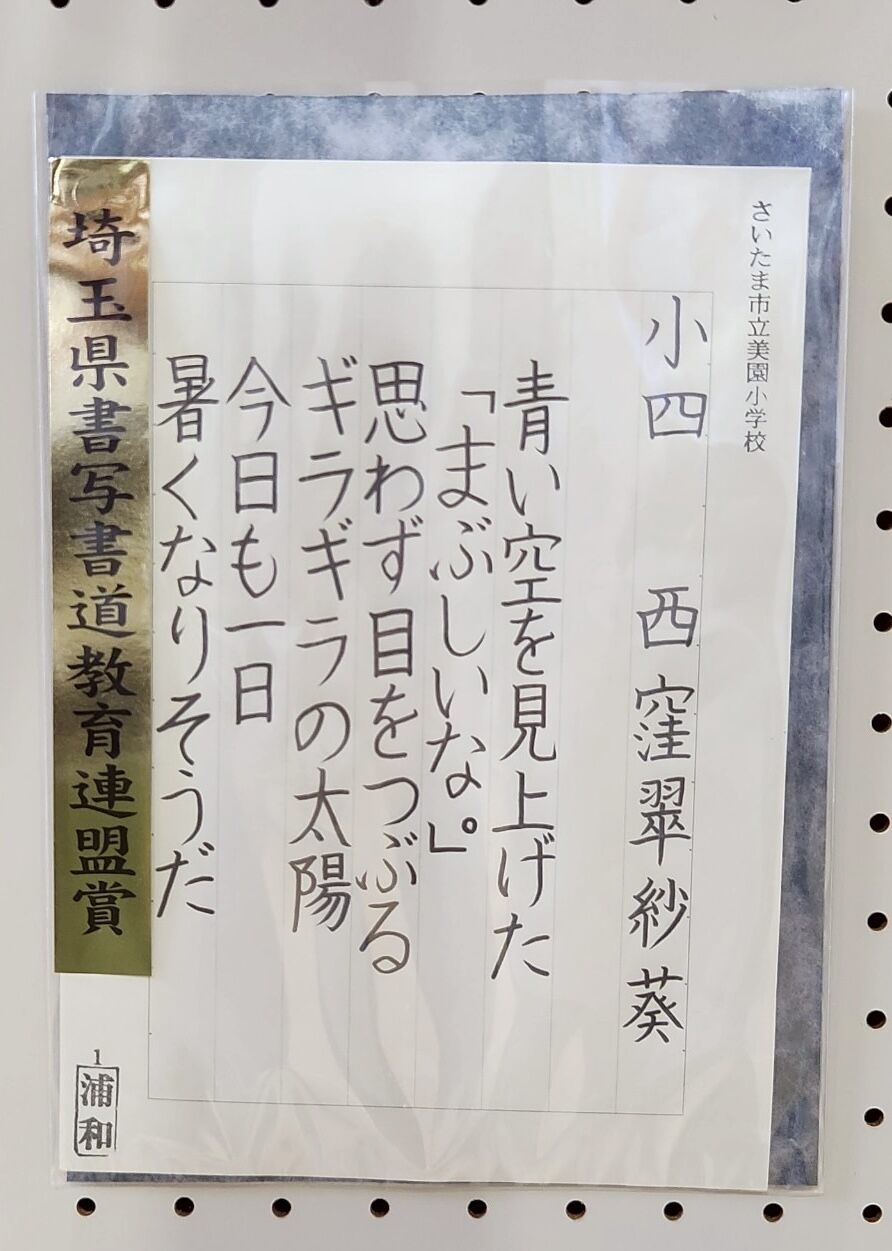 さいたま市立美園小学校
小四　西窪翠紗葵
青い空を見上げた
「まぶしいな。」
思わず目をつぶる
ギラギラの太陽
今日も一日
暑くなりそうだ
埼玉県書写書道教育連盟賞
1
浦和